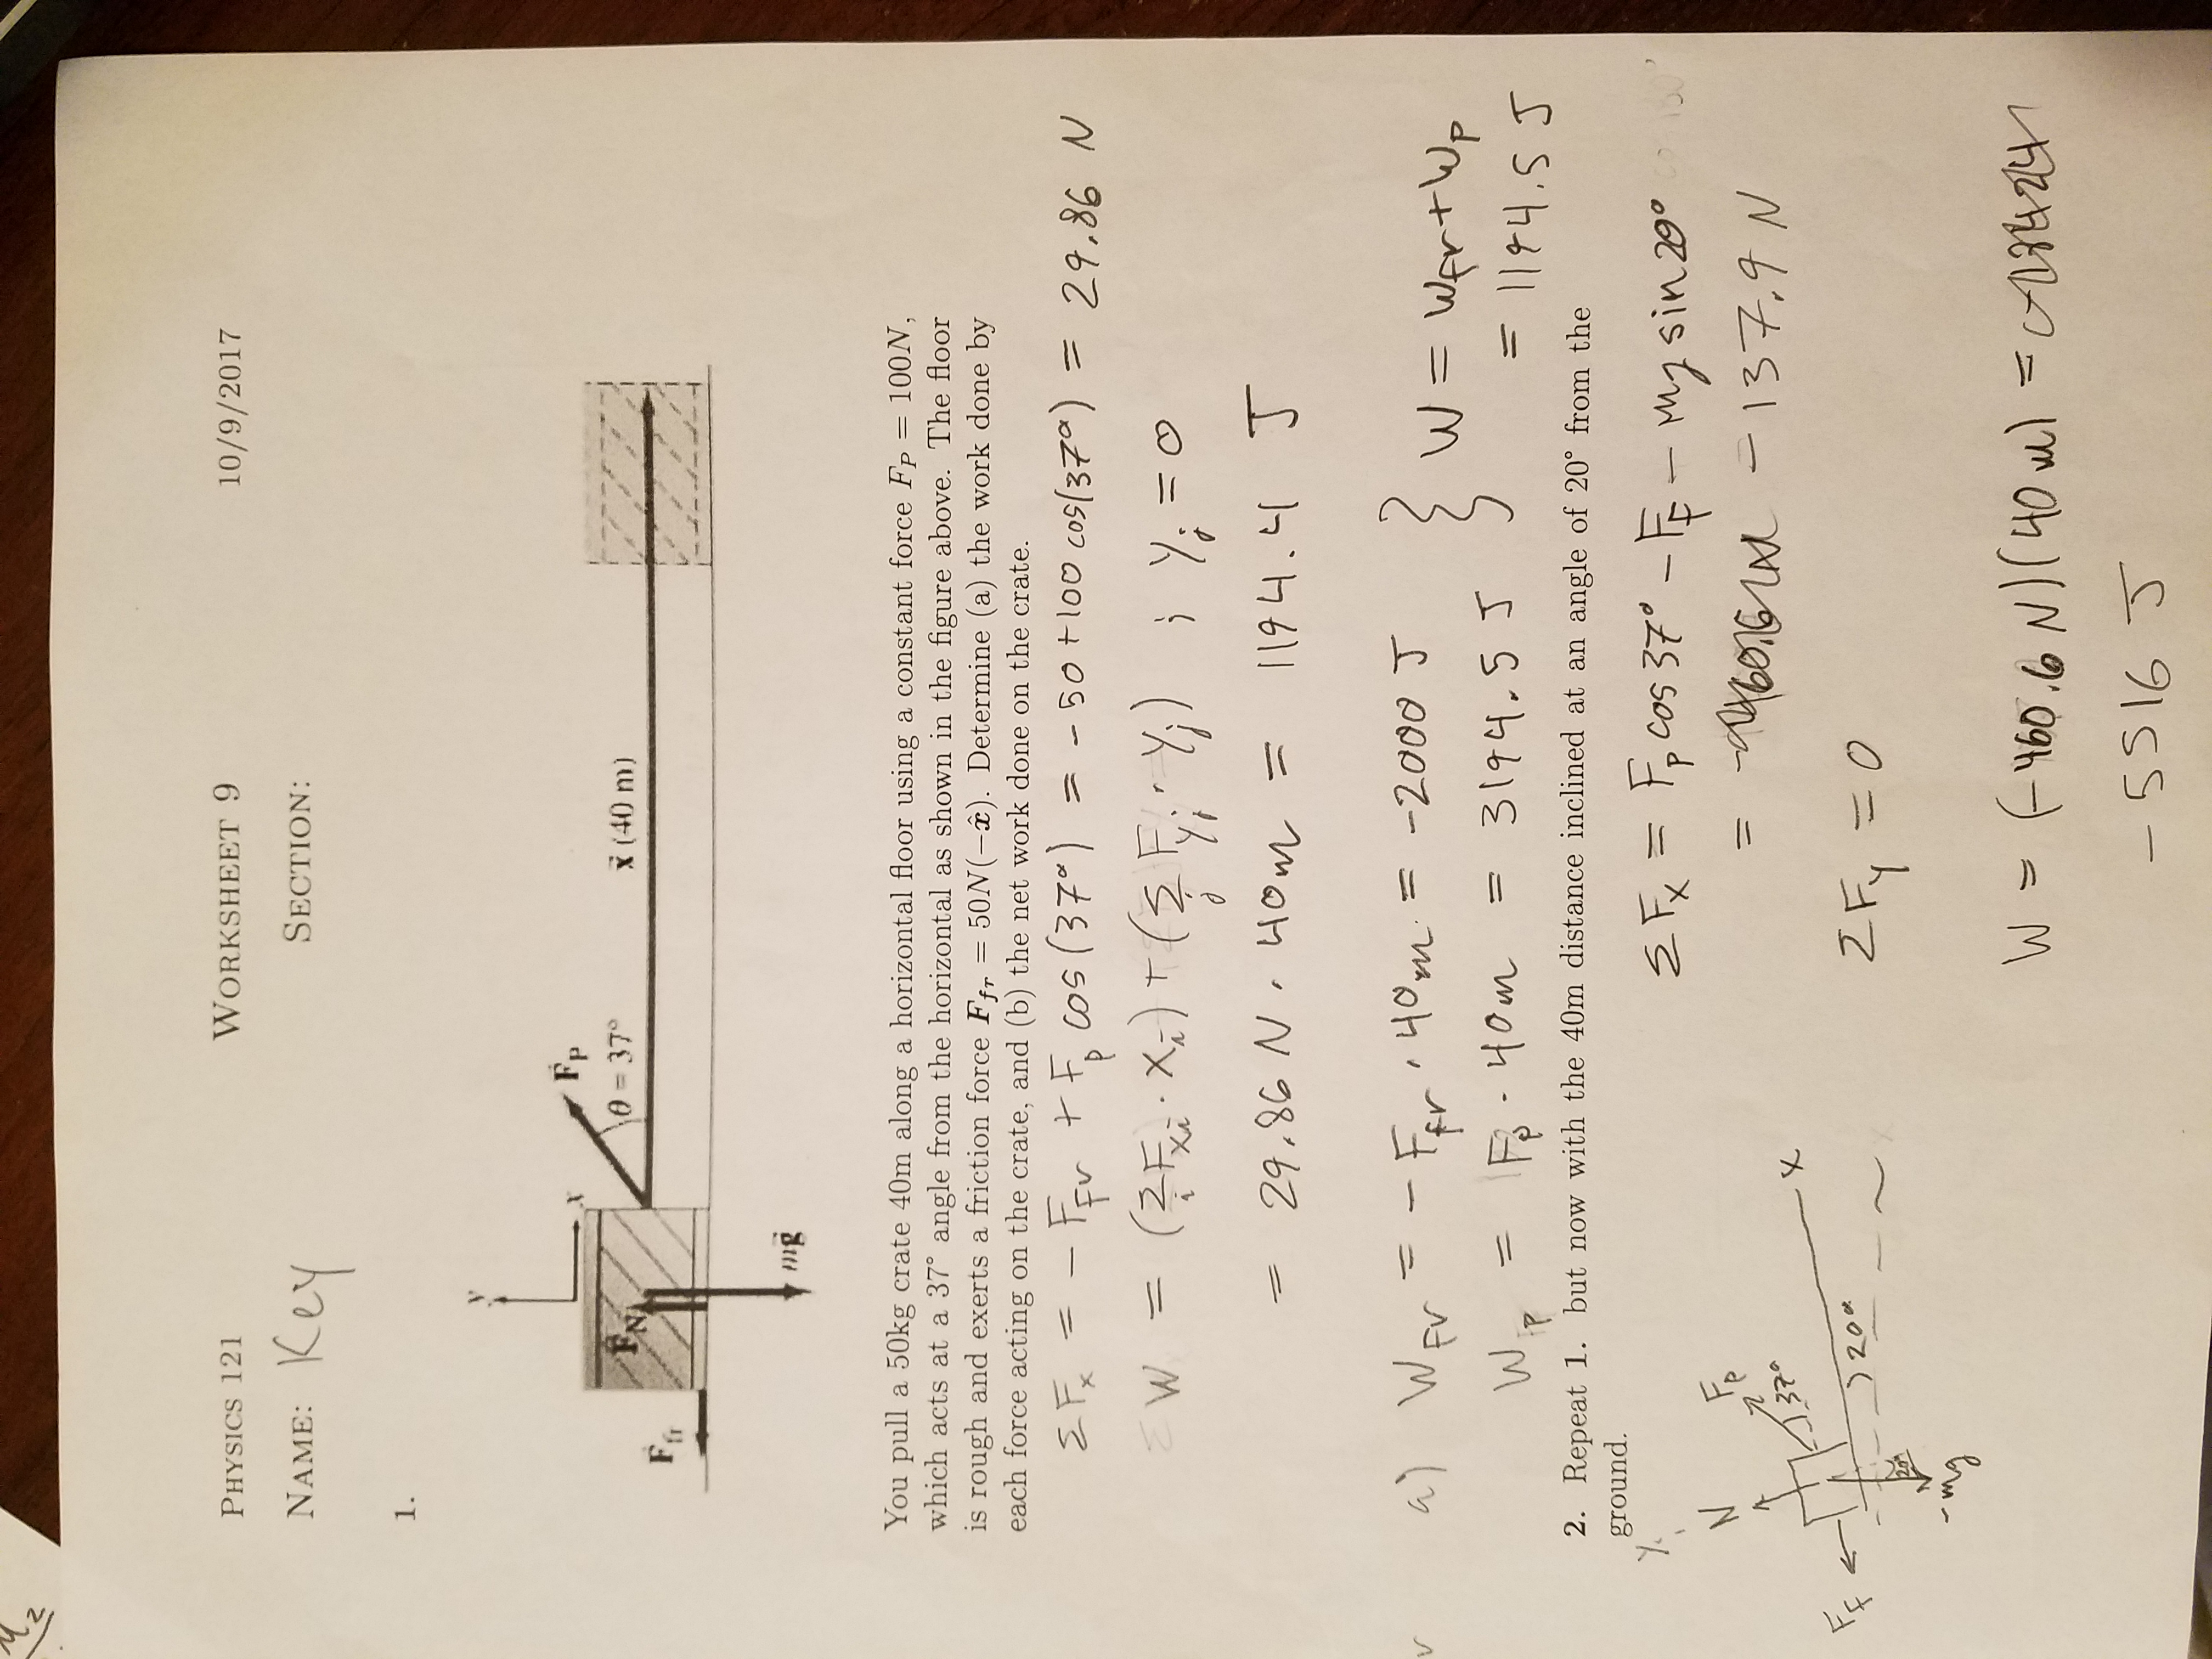 M₂
PHYSICS 121 WORKSHEET 9 10/9/2017
NAME: Key SECTION:
1.
y
x
F⃗P
θ = 37°
x⃗ (40 m)
F⃗N
F⃗fr
mg⃗
You pull a 50kg crate 40m along a horizontal floor using a constant force F_P = 100N,
which acts at a 37° angle from the horizontal as shown in the figure above. The floor
is rough and exerts a friction force F_fr = 50N(−x̂). Determine (a) the work done by
each force acting on the crate, and (b) the net work done on the crate.
ΣFx = − Ffr + Fp cos(37°) = −50 + 100 cos(37°) = 29.86 N
ΣW = (Σi Fxi · Xi) + (Σj Fyj · Yj) ; Yj = 0
= 29.86 N · 40m = 1194.4 J
a) Wfr = − Ffr · 40m = −2000 J
Wp = Fp · 40m = 3194.5 J } W = Wfr + Wp
= 1194.5 J
2. Repeat 1. but now with the 40m distance inclined at an angle of 20° from the
ground.
ΣFx = Fp cos 37° − Ff − mg sin 20°
= −137.9 N
y
N
Fp
37°
x
Ff
20°
20°
−mg
ΣFy = 0
W = (−460.6 N)(40 m) =
−5516 J